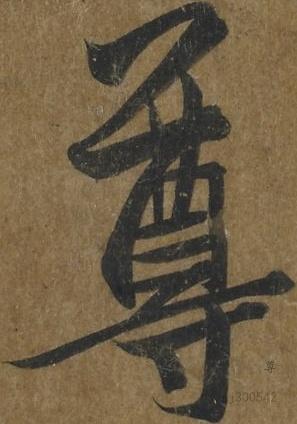 尊
尊
j300542